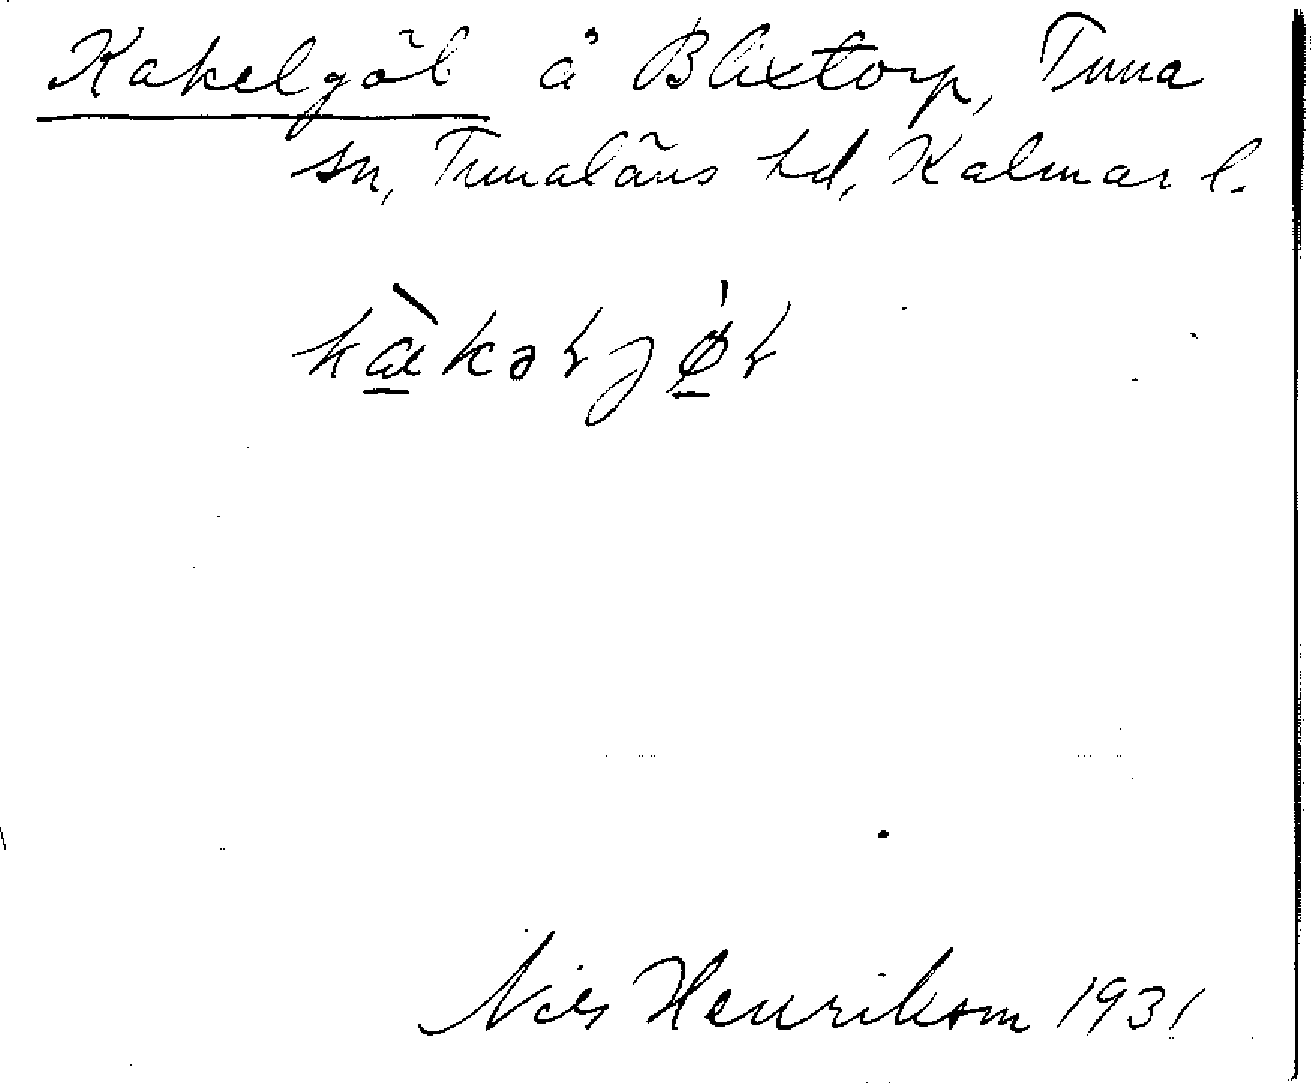 Kakelgöl å Blixtorp, Tuna
sn, Tunaläns hd, Kalmar l.
kɑ̀kəɫjø̍ɫ
Nils Henrikson 1931